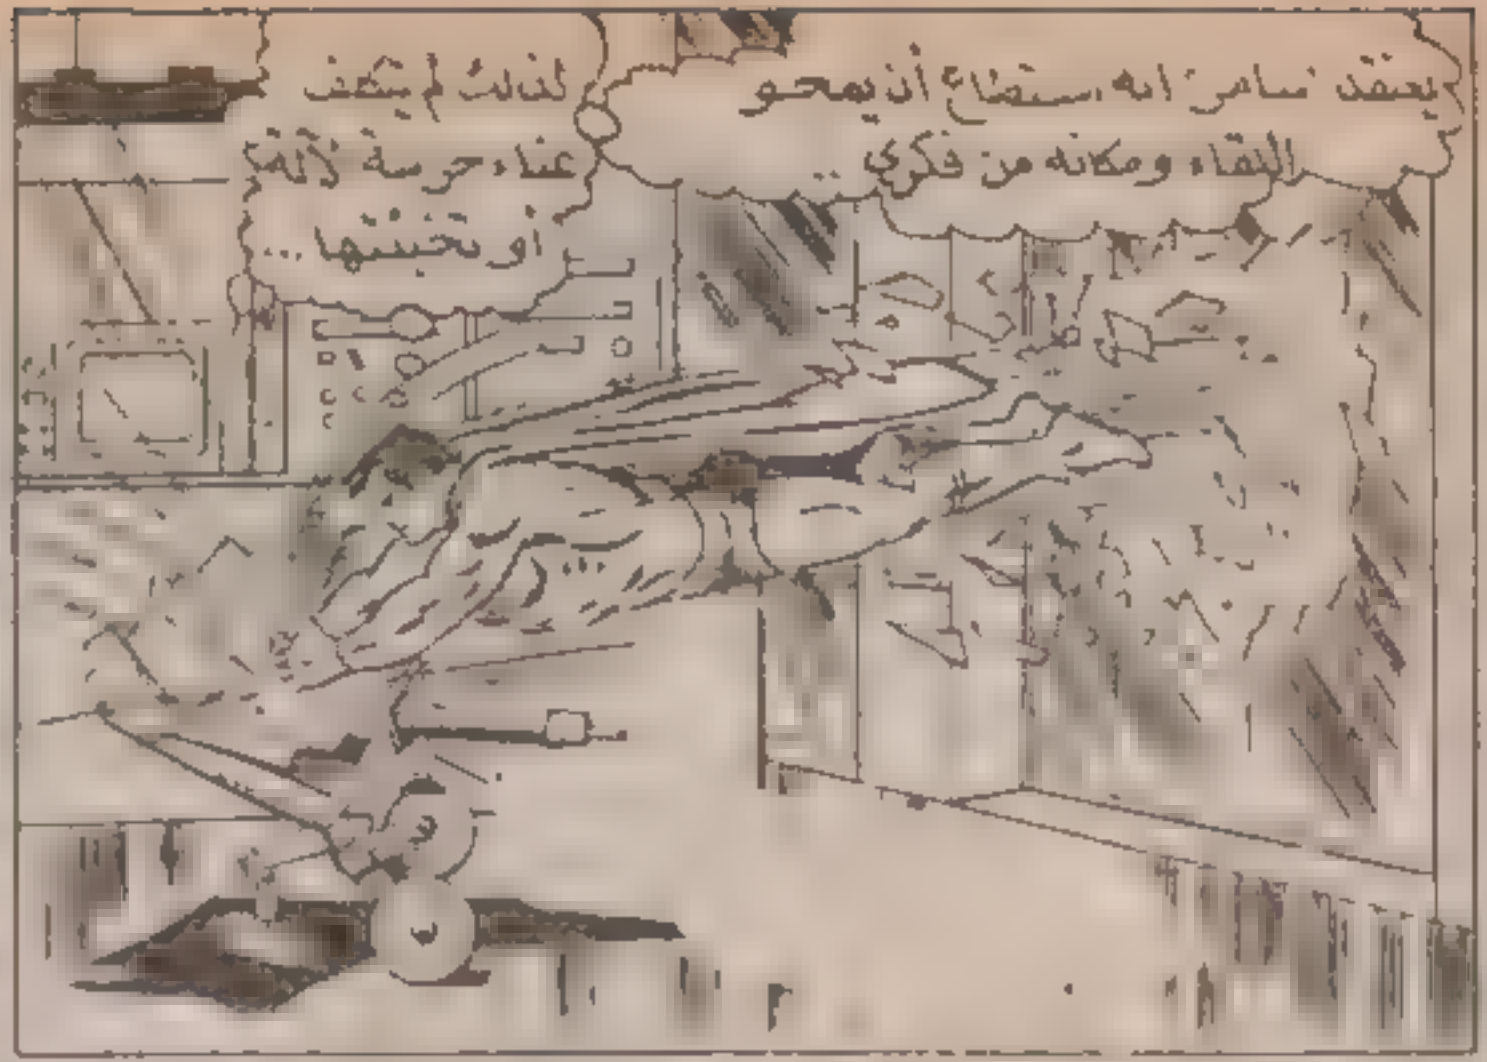 يعتقد سامر انه استطاع أن يمحو
اللقاء ومكانه من فكري ..
لذلك لم يتكلف
عناء حراسة لآلة
او تخبئتها ...